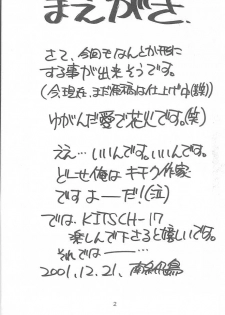 まえがき.
さて、今回もなんとか形に
する事が出来そうです。
(今現在、まだ原稿は仕上げ中(鬱))
ゆがんだ愛で花火です。(笑)
ええ…いいんです。いいんです。
どーせ俺はキモチク作家
ですよーだ!(泣)
では、KITSCH-17
楽しんで下さると嬉しいです。
それでは――
2001.12.21.
2